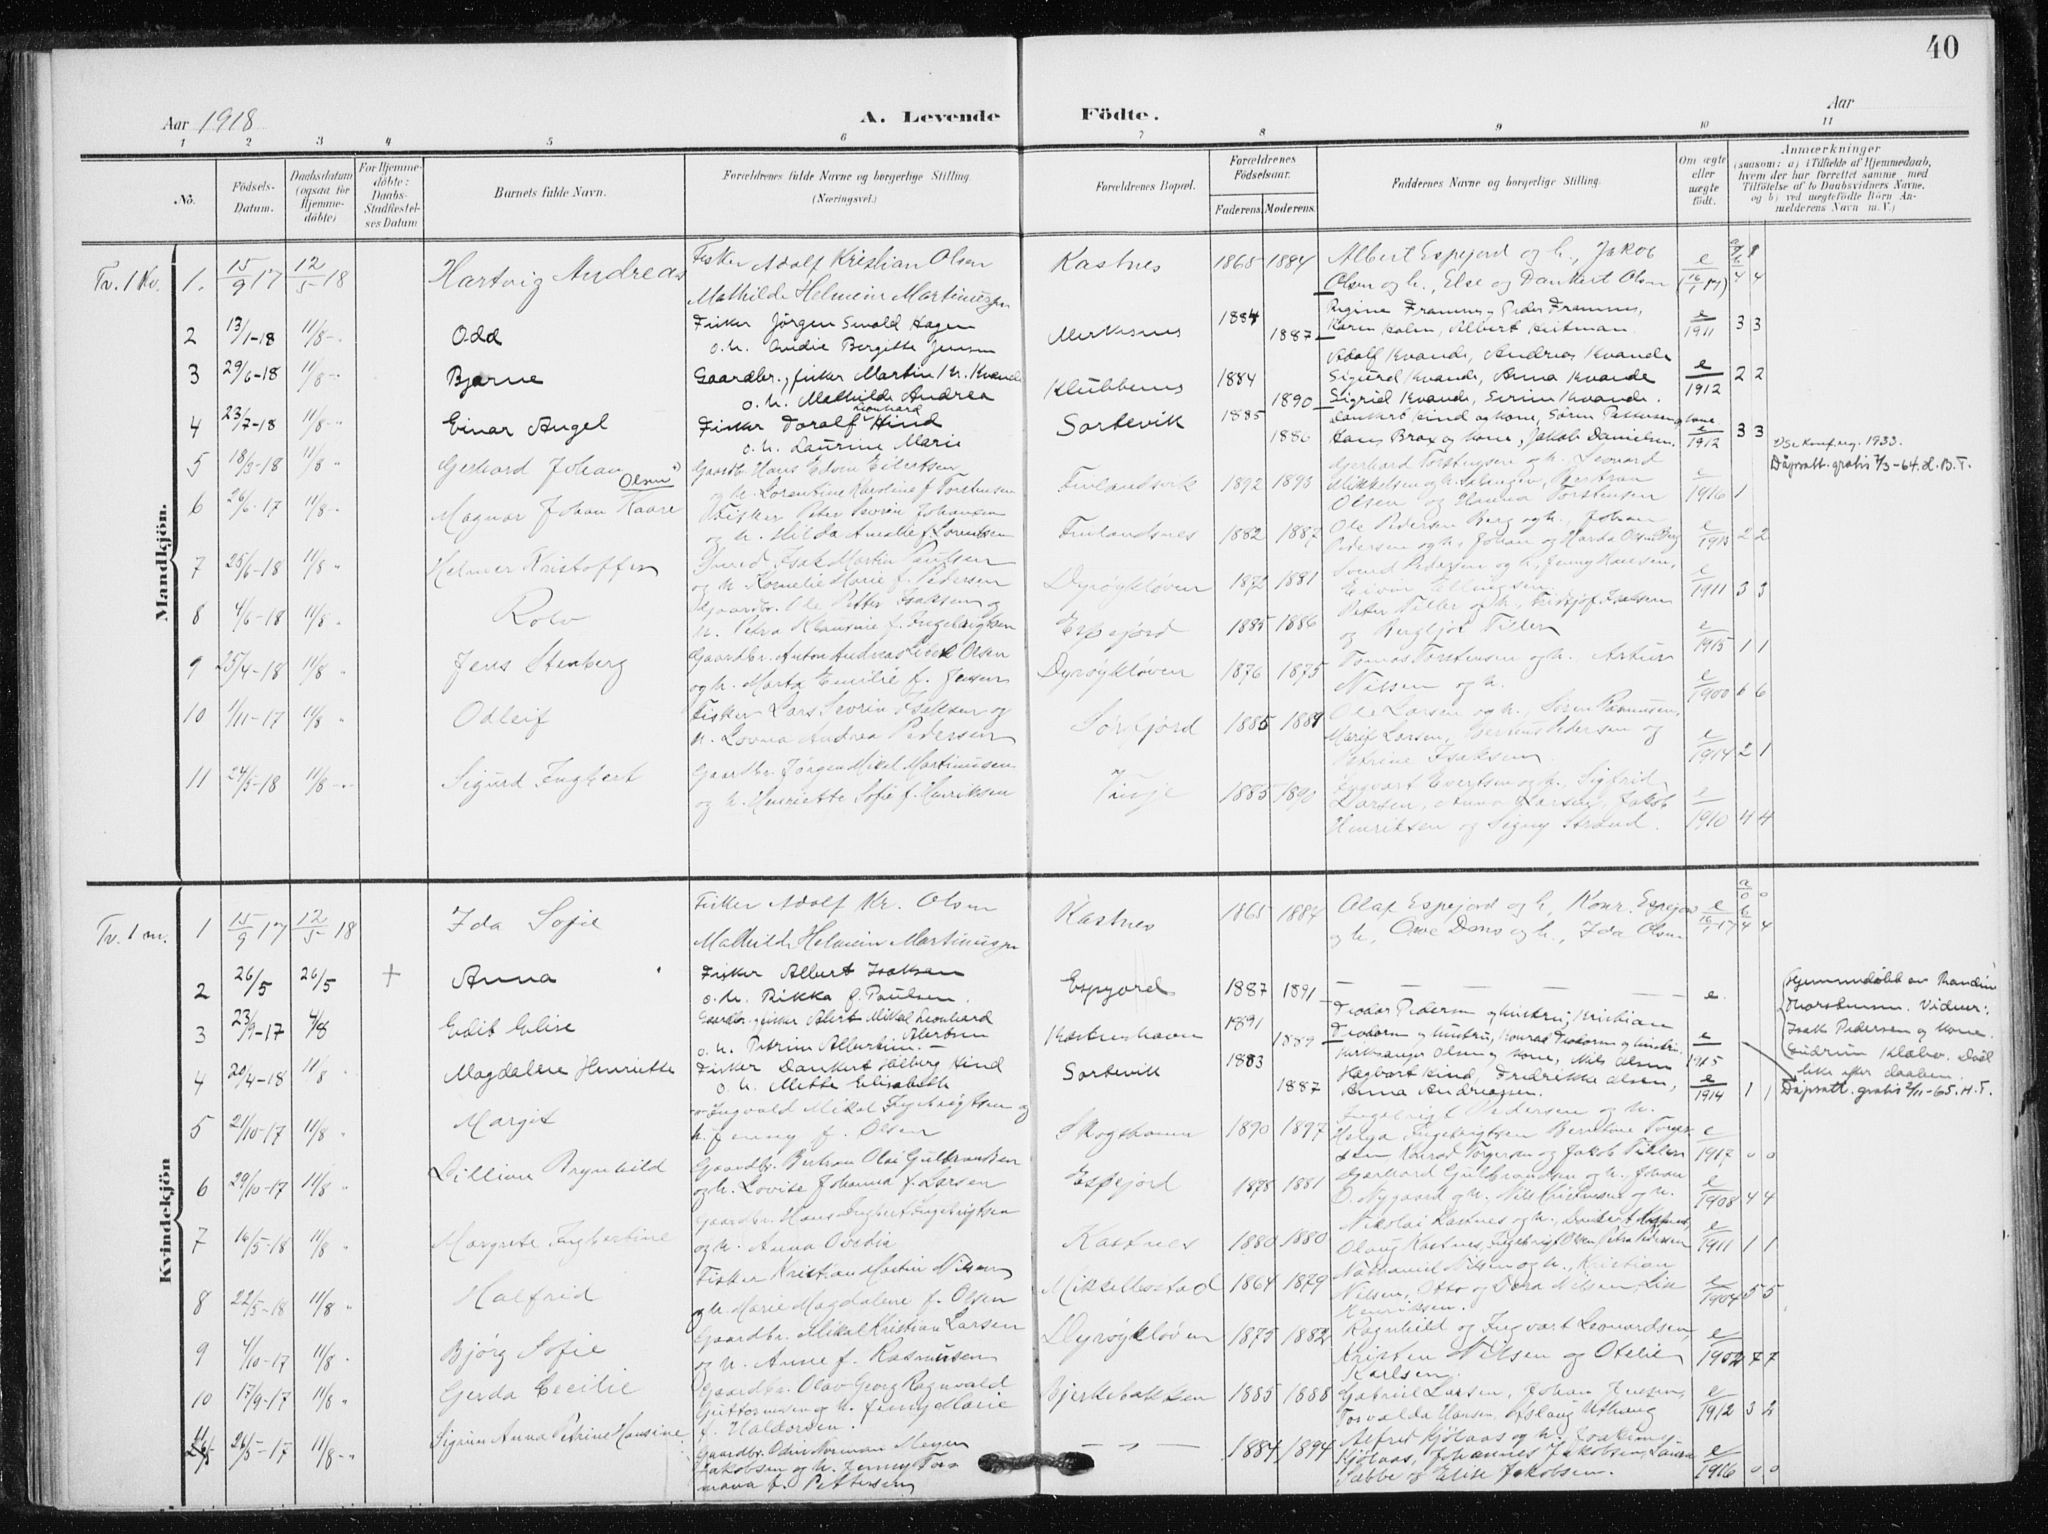 40
Aar 1918
A. Levende Födte.
Aar
1 2 3 4 5 6 7 8 9 10 11
No.
Födsels-Datum.
Daabsdatum (ogsaa for Hjemme-döbte)
For Hjemme-döbte: Daabs-Stadfæstel-ses Datum
Barnets fulde Navn.
Forældrenes fulde Navne og borgerlige Stilling. (Næringsvei.)
Forældrenes Bopæl.
Forældrenes Födselsaar.
Faderens. Moderens.
Faddernes Navne og borgerlige Stilling.
Om ægte eller uægte födt.
Anmærkninger
(saasom: a) i Tilfælde af Hjemmedaab, hvem der har forrettet samme, med Tilföielse af to Daabsvidners Navne, og b) ved uægtefödte Börn An-melderens Navn m. V.)
Mandkjön.
Tv. 1 Kv. 1. 15/9 17 12/5 18 Hartvig Andreas
Fisker Adolf Kristian Olsen
Mathilde Helmein Martinussen
Kastnes 1865 1884
Albert Espejord og h., Jakob
Olsen og h., Else og Dankert Olsen
2 13/1-18 11/8 Odd
Fisker Jörgen Sevald Hagen
o.h. Ovidie Bergitte Jensen
1884 1887
Karen Holm, Albert Heitman.
e/1911 3 3
3 29/6-18 11/8 Bjarne
Gaardbr., fisker Martin Kr. Kvande
o.h. Mathilde Andrea
Klubbenes 1884 1890
Adolf Kvande, Andreas Kvande
Sigurd Kvande, Anna Kvande
Sigrid Kvande, Sirine Kvande.
e/1912 2 2
4 23/7-18 11/8 Einar Angel
Fisker Toralf Leonhard Hind
o.h. Laurine Marie
Sortevik 1885 1886
Hans Brox og kone, Jakob Danielsen.
e/1912 3 3
5 18/3-18 11/8 Gerhard Johan
Gaardb. Hans Edvin Eilertsen
og h. Lorentine Karoline f. Torstensen
Finlandsvik 1892 1893
Gerhard Torstensen og h. Leonard
Olsen og Hanna Torstensen
e/1916 1
Dåpsatt. gratis 7/3-64. H.B.T.
6 26/6-17 11/8 Magnar Johan Kaare Olsen
Fisker Peter Severin Johansen
og h. Hilda Amalie f. Lorentsen
Finlandsnes 1882 1887
Ole Pedersen Berg og h., Johan
Pedersen og h., Johan og Harda Olsen Berg
2 2
7 25/6-18 11/8 Helmer Kristoffer
Isak Martin Paulsen
og h. Kornelie Marie f. Pedersen
Dyröykløven 1872 1881
Svend Pedersen og h., Jenny Hansen,
Eivin Ellingsen
e/1911 3 3
8 4/6-18 11/8 Rolv
Gaardbr. Ole Petter Isaksen og
h. Petra Klausine f. Ingebrigtsen
Espejord 1885 1886
Peter Tiller og h., Fridtjof Isaksen
og Bergljot Tiller
e/1915 1 1
9 25/4-18 11/8 Jens Stenberg
Gaardbr. Anton Andreas Olsen
og h. Marta Emilie f. Jensen
Dyröykløven 1876 1875
Tomas Torstensen og h. Artur
Nilsen og h.
e/1900 6 6
10 1/11-17 11/8 Odleif
Fisker Lars Severin Isaksen og
h. Lovna Andrea Pedersen
Sörfjord 1885 1889
Ole Larsen og h., Sören Rasmussen,
Marit Larsen, Pedersen og
Petrine Isaksen.
e/1914 2 1
11 24/5-18 11/8 Sigurd Ingbert
Gaardbr. Jörgen Mikal Martinusen
og h. Henriette Sofie f. Henriksen
1885 1890
Evertsen og h. Sigfrid
Larsen, Anna Larsen, Jakob
Henriksen og Signy Strand.
e/1910 4 4
Kvindekjön
Tv. 1 m. 1 15/9 17 12/5 18 Ida Sofie
Fisker Adolf Kr. Olsen
Mathilde Helmein Martinussen
Kastnes 1865 1884
Olaf Espejord og h, Konr. Espejord
og h., Ove Dons og h., Ida Olsen
2 26/5 26/5 + Anna
Fisker Albert Isaksen
o.h. Rikka f. Paulsen.
Espejord 1887 1891
e
Hjemmedöbt av Randine
Thorstensen. Vidner:
Isak Pedersen og kone
Gudrun Kläbo. Död
like efter daaben.
3 23/9-17 4/8 Edit Elise
Gaardbr. fisker Alert Mikal Leonhard Alertsen
o.h. Petrine Albertine.
Kastneshavn 1891 1889
Teodor Pedersen og hustru, Kristian
e/1915
4 20/4-18 11/8 Magdalene Henriette
Fisker Dankert Hilberg Hind
o.h. Mette Elisabeth
Sortevik 1883 1887
Hagbart Hind, Fredrikke Olsen,
Anna Andreassen.
e/1914 1 1
Dåpsatt. gratis 2/11-65. H.T.
5 21/10-17 11/8 Margit
Ingvald Mikal Ingebrigtsen og
h. Jenny f. Olsen
Skogshavn 1890 1897
Ingebrigt Pedersen og h.
Helga Ingebrigtsen Berntine Torger-
sen Konrad Torgersen og Jakob Tiller
e/1917 0 0
6 29/10-17 11/8 Lillian Brynhild
Gaardbr. Bertran Olai Gulbrandsen
og h. Lovise Johanna f. Larsen
Espejord 1878 1881
Gerhard Gulbrandsen og h. Johan
O. Nygaard og h. Nils Kristensen og h.
e/1908 4 4
7 16/5-18 11/8 Margrete Ingbertine
Gaardbr. Hans Ingbert Ingebrigtsen
og h. Anna Ovedia
Kastnes 1880 1880
Nikolai Kastnes og h., Dankert Kastnes,
Olaug Kastnes, Ingebrigt Olsen, Petra Pedersen
e/1911 1 1
8 22/5-18 11/8 Halfrid
Fisker Kristian Martin Nilsen
og h Marie Magdalene f. Olsen
Mikkelbostad 1864 1879
Nathaniel Nilsen og h., Kristian
Nilsen, Otto og Dora Nilsen, Lise
Henriksen.
e/1904 5 5
9 4/10-17 11/8 Bjørg Sofie
Gaardbr. Mikal Kristian Larsen
og h. Anne f. Rasmussen
Dyröykløven 1875 1882
Ragnhild og Ingvart Leonardsen,
Kristen Nilsen og Otelie
Karlsen.
e/1902 7 7
10 17/9-17 11/8 Gerda Cecilie
Gaardbr. Olav Georg Ragnvald
Guttormsen og h. Jenny Marie
f. Haldorsen.
Bjerkebakken 1885 1888
Gabriel Larsen, Johan Jensen,
Torvalda Hansen, Aslaug Uthaug
e/1912 3 2
11 26/5-17 11/8 Sigrun Anna Petrine Hansine
Gaardbr. Odin Norman Meyer
Jakobsen og h. Jenny Tor-
mana f. Pettersen
1884 1894
Alfred Kjölaas og h. Joakim
Kjölaas, Johannes Jakobsen, Laura
Labbe og Elise Jakobsen.
e/1916 0 0